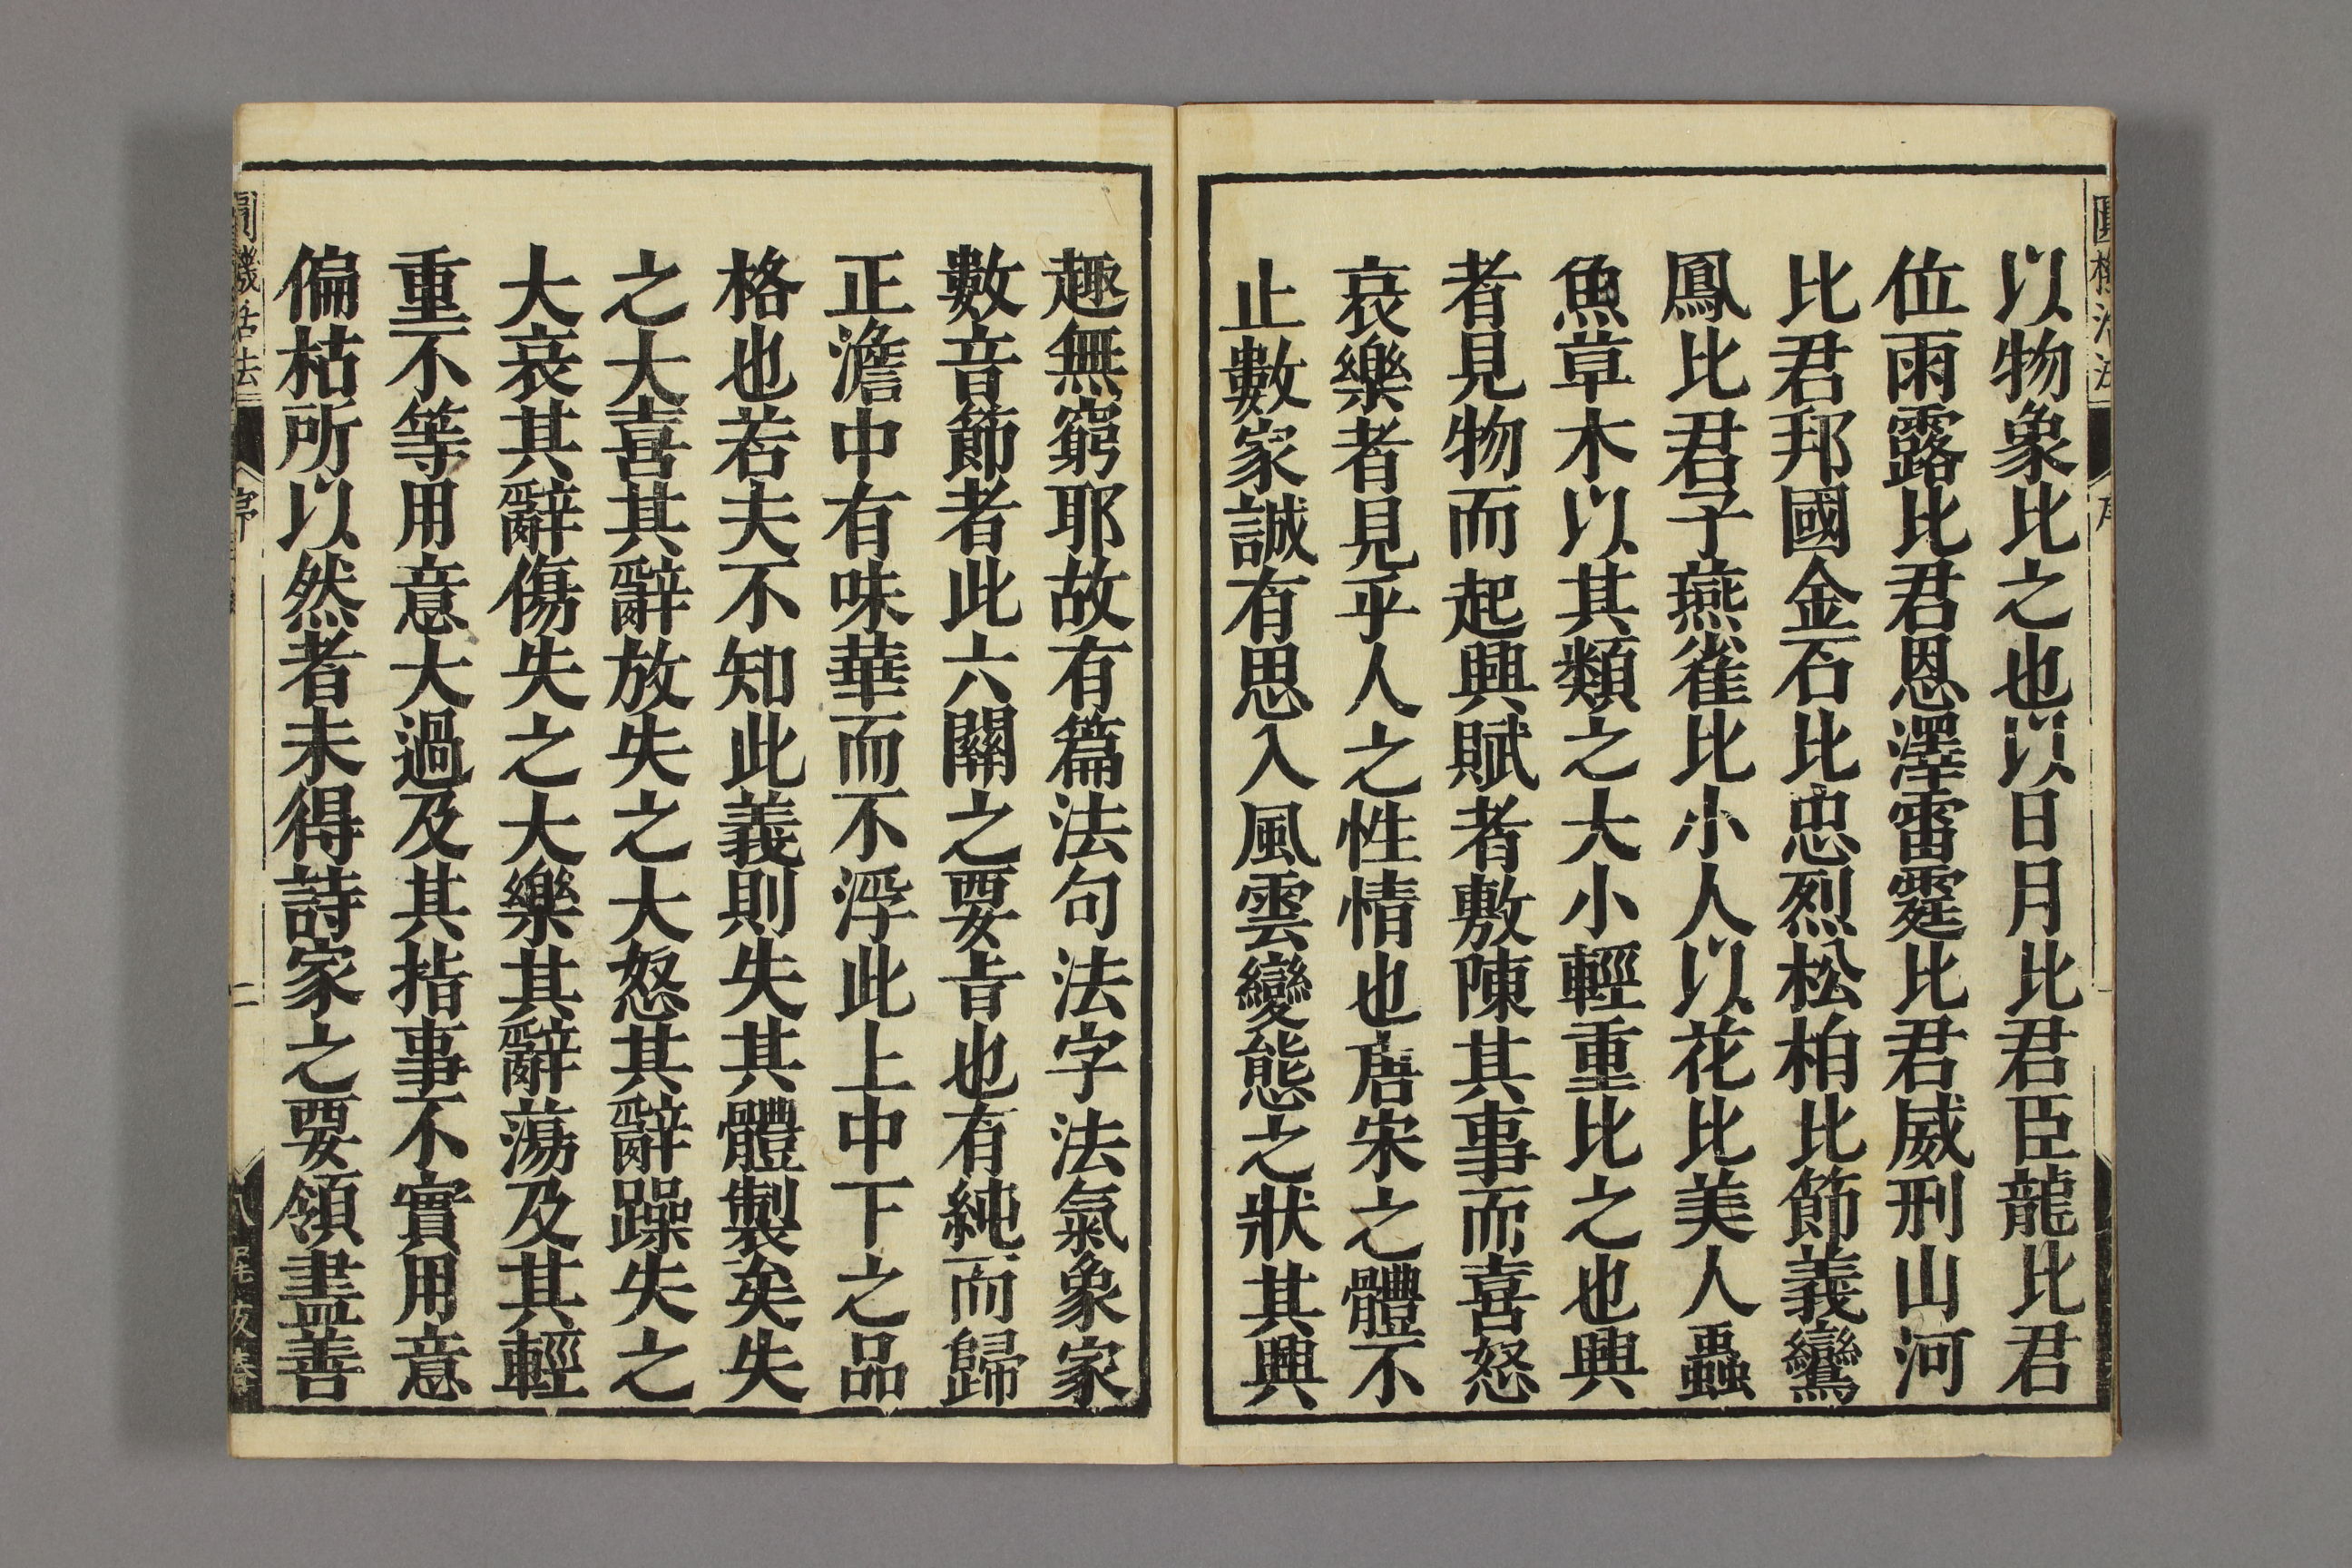 以物象比之也以日月比君臣龍比君
位雨露比君恩澤雷霆比君威刑山河
比君邦國金石比忠烈松柏比節義鸞
鳳比君子燕雀比小人以花比美人蟲
魚草木以其類之大小輕重比之也興
者見物而起興賦者敷陳其事而喜怒
哀樂者見乎人之性情也唐宋之體不
止數家誠有思入風雲變態之狀其興
趣無窮耶故有篇法句法字法氣象家
數音節者此六關之要旨也有純而歸
正澹中有味華而不浮此上中下之品
格也若夫不知此義則失其體製矣失
之大喜其辭放失之大怒其辭躁失之
大哀其辭傷失之大樂其辭蕩及其輕
重不等用意大過及其指事不實用意
偏枯所以然者未得詩家之要領盡善
機活法
序
二